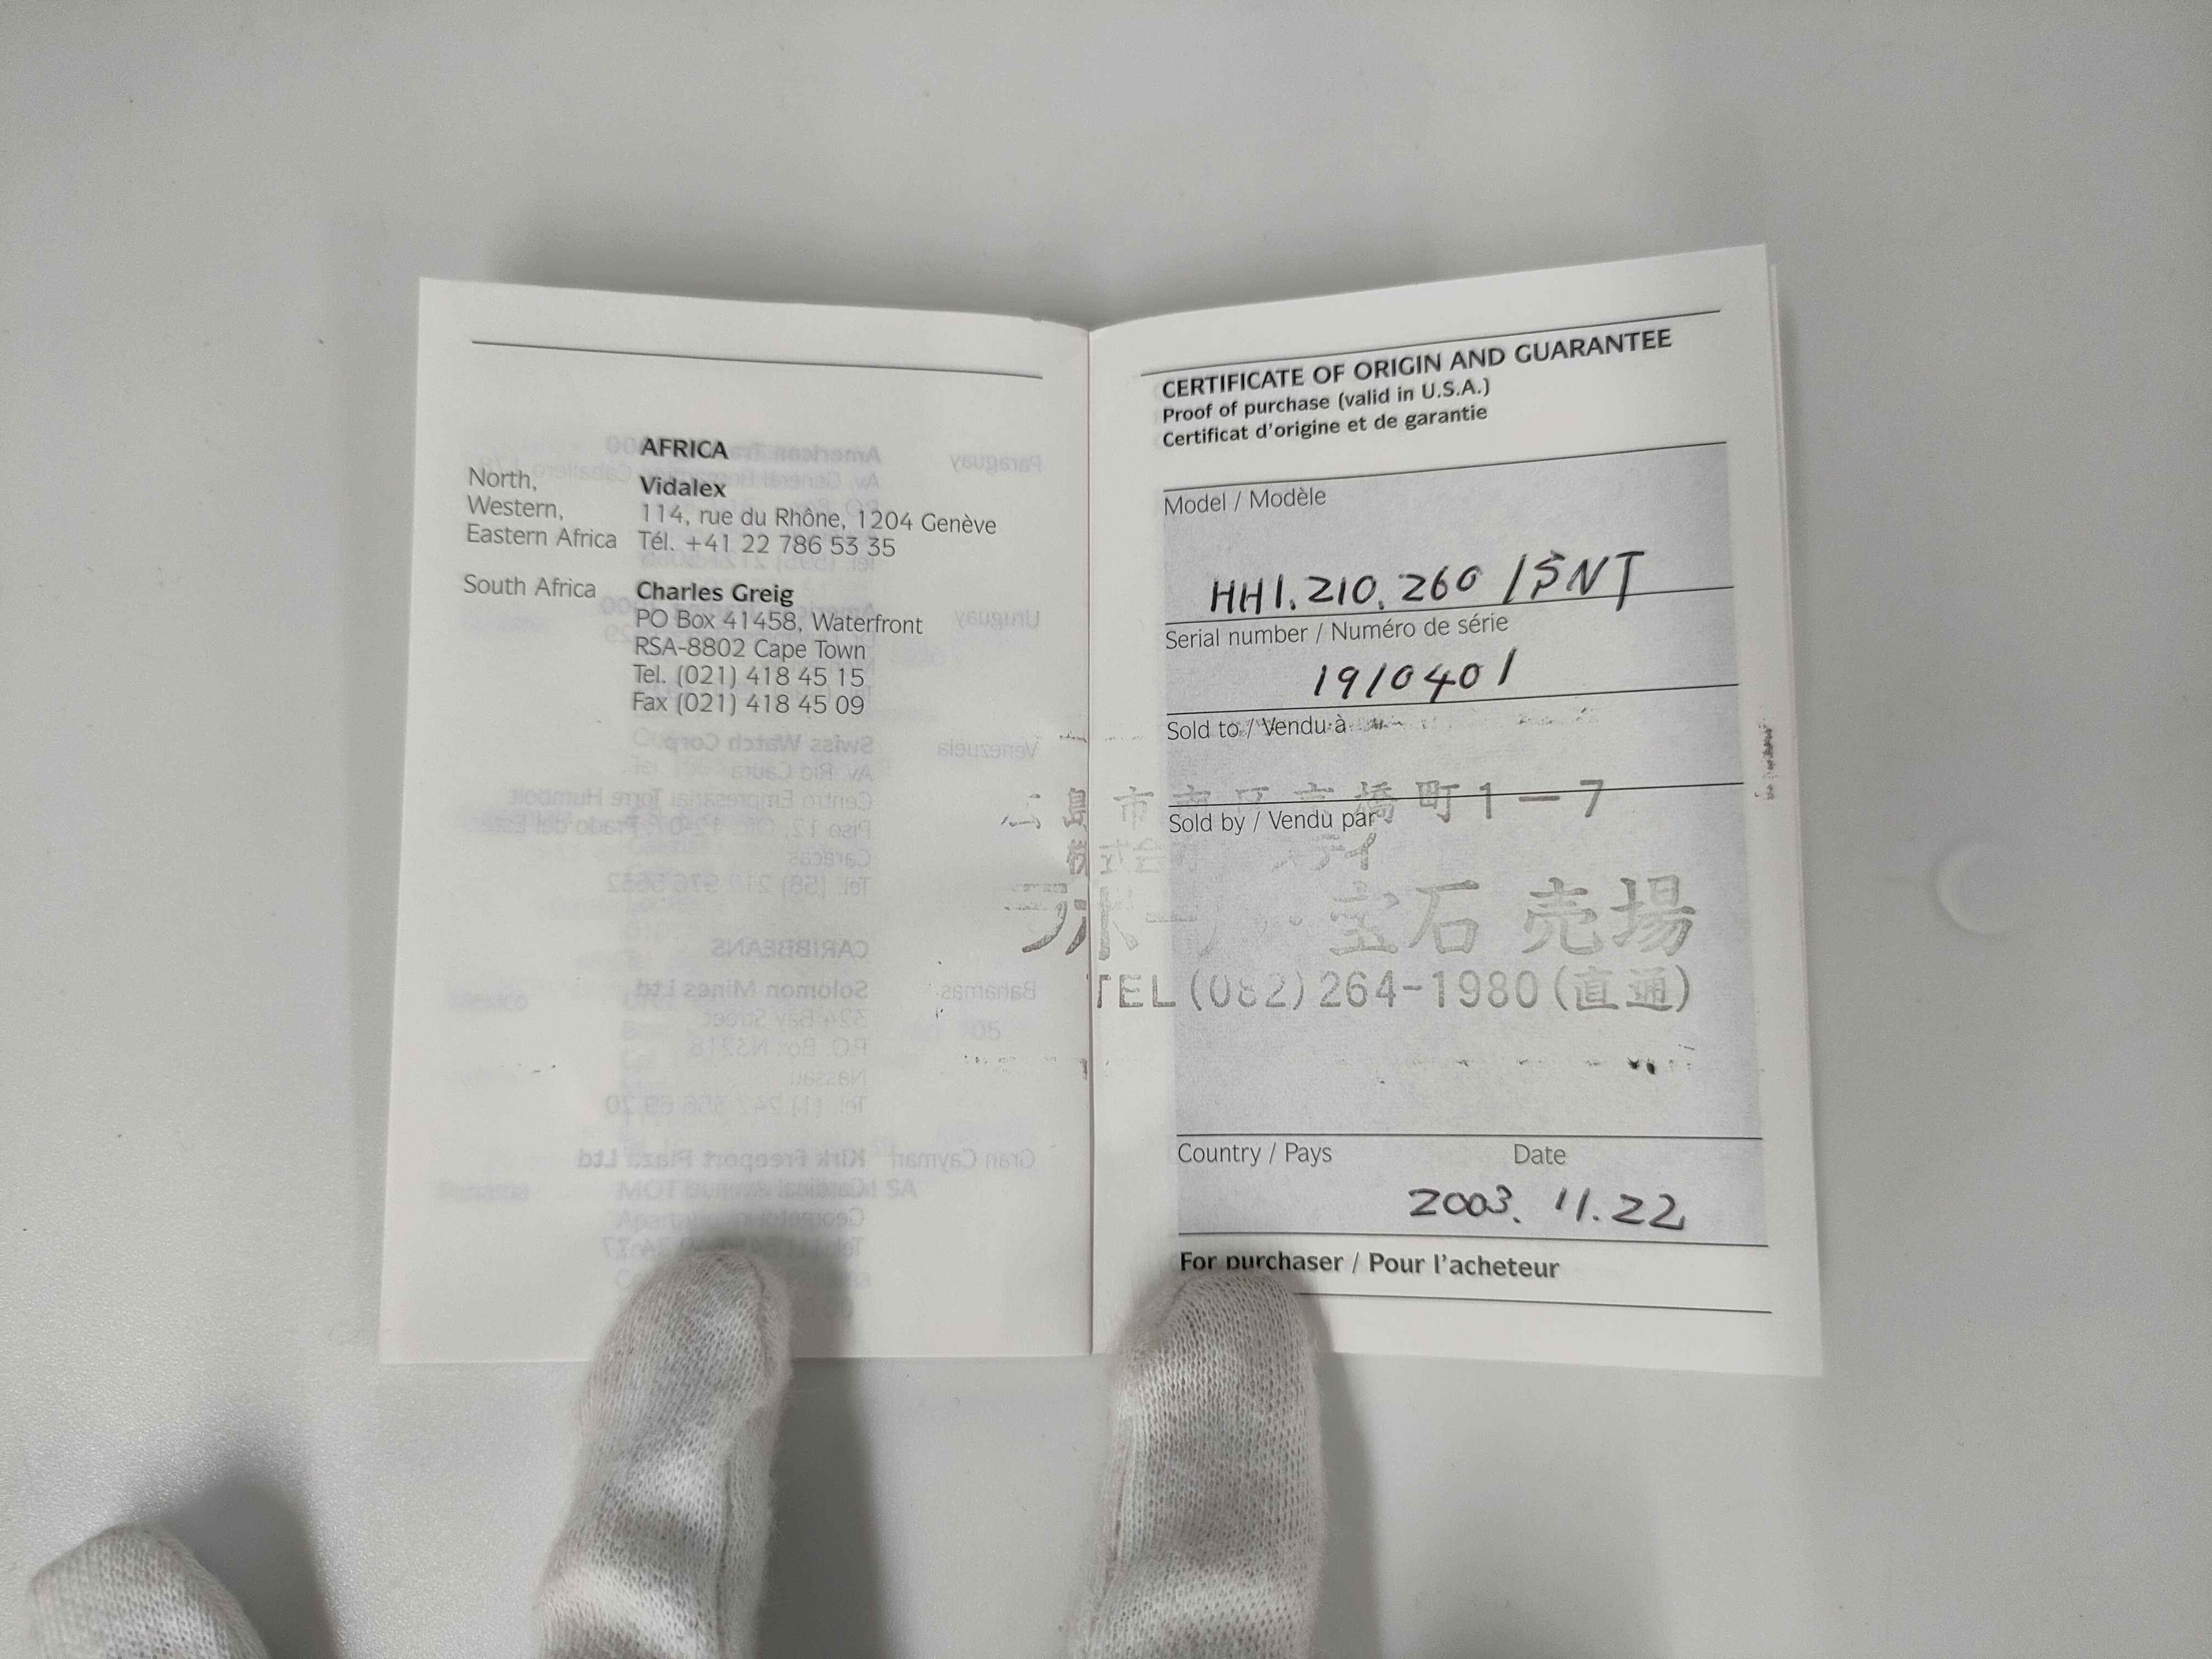 AFRICA
North,
Western,
Eastern Africa
Vidalex
114, rue du Rhône, 1204 Genève
Tél. +41 22 786 53 35
South Africa
Charles Greig
PO Box 41458, Waterfront
RSA-8802 Cape Town
Tel. (021) 418 45 15
Fax (021) 418 45 09
CERTIFICATE OF ORIGIN AND GUARANTEE
Proof of purchase (valid in U.S.A.)
Certificat d'origine et de garantie
Model / Modèle
HH1.210.260 / SNT
Serial number / Numéro de série
1910401
Sold to / Vendu à
島市南区京橋町1-7
Sold by / Vendu par
宝石売場
TEL(082)264-1980(直通)
Country / Pays
Date
2003. 11. 22
For purchaser / Pour l'acheteur